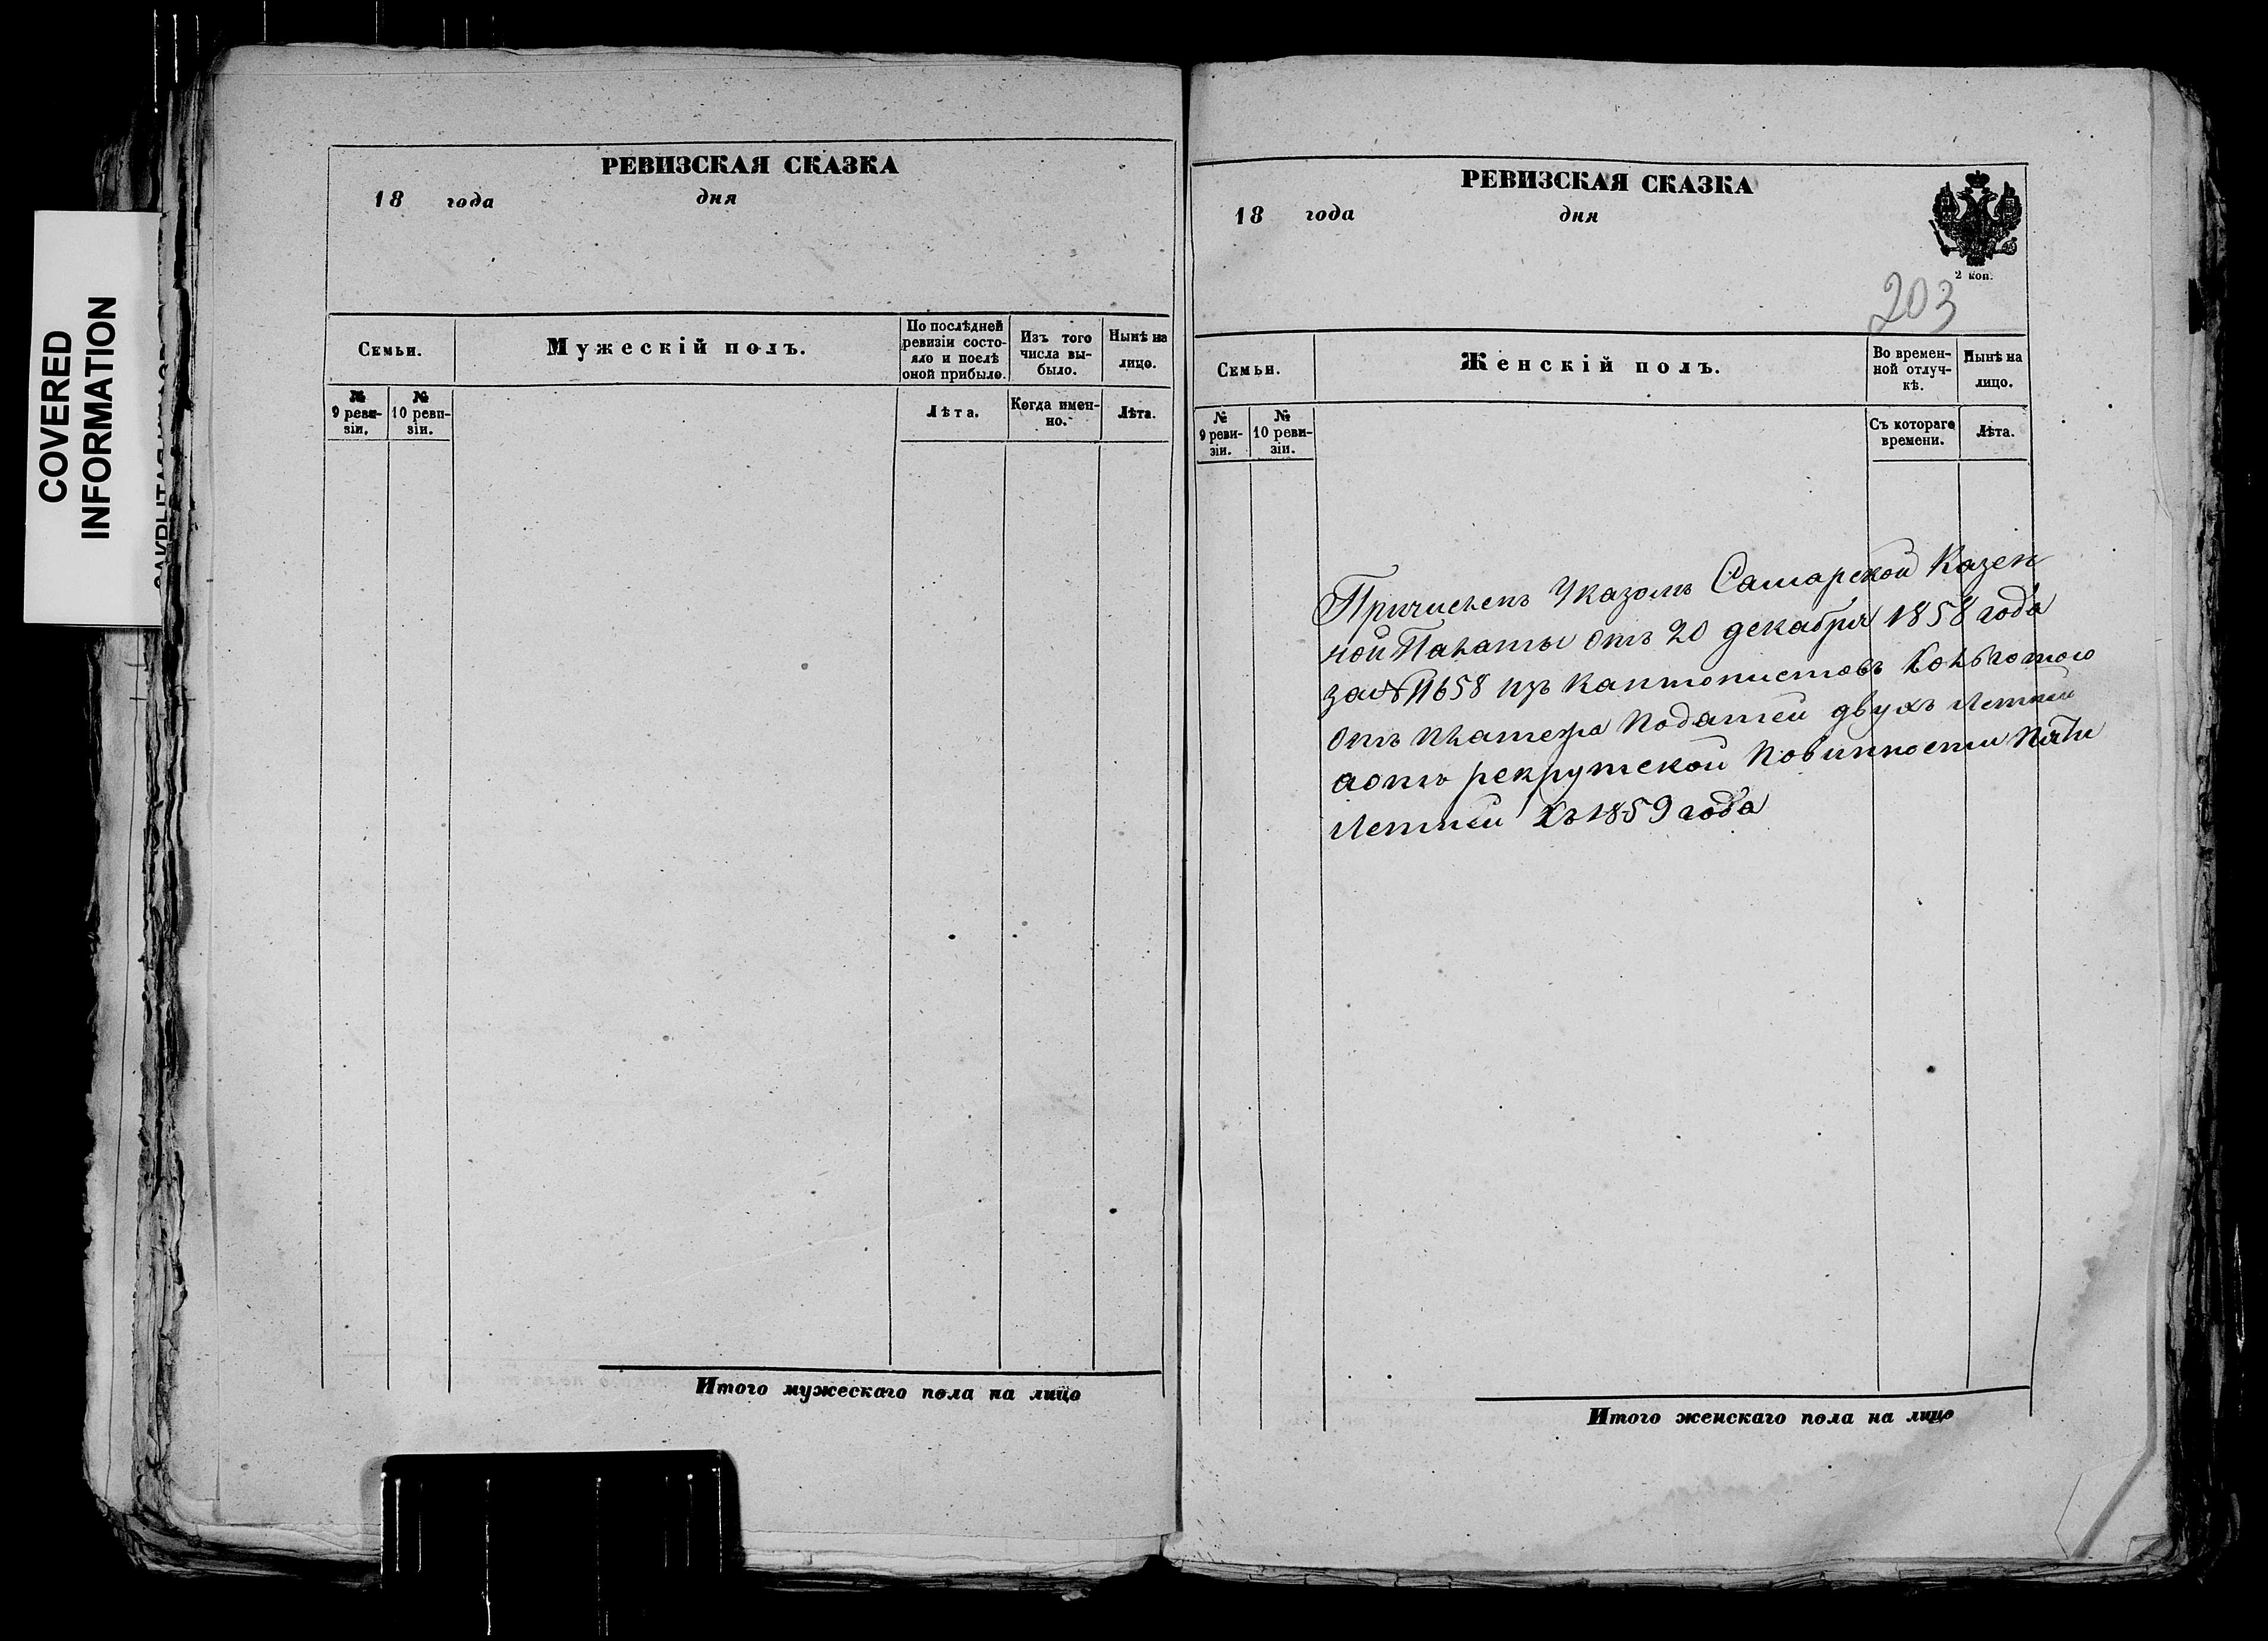 COVERED
INFORMATION
РЕВИЗСКАЯ СКАЗКА
18 года дня
Семьи.
Мужескій полъ.
По послѣдней
ревизіи состо-
яло и послѣ
оной прибыло.
Изъ того
числа вы-
было.
Нынѣ на
лицо.
№
9 реви-
зіи.
№
10 реви-
зіи.
Лѣта.
Когда имен-
но.
Лѣта.
Итого мужескаго пола на лицо
РЕВИЗСКАЯ СКАЗКА
18 года дня
2 коп.
203
Семьи.
Женскій полъ.
Во времен-
ной отлуч-
кѣ.
Нынѣ на
лицо.
№
9 реви-
зіи.
№
10 реви-
зіи.
Съ котораго
времени.
Лѣта.
Причисленъ Указомъ Самарской Казен
ной Палаты отъ 20 декабря 1858 года
за № 11658 изъ Кантонистовъ Сольготою
отъ платежа Податей двухъ летней
аотъ рекрутской Повинности Пяти
летней Съ 1859 года
Итого женскаго пола на лицо